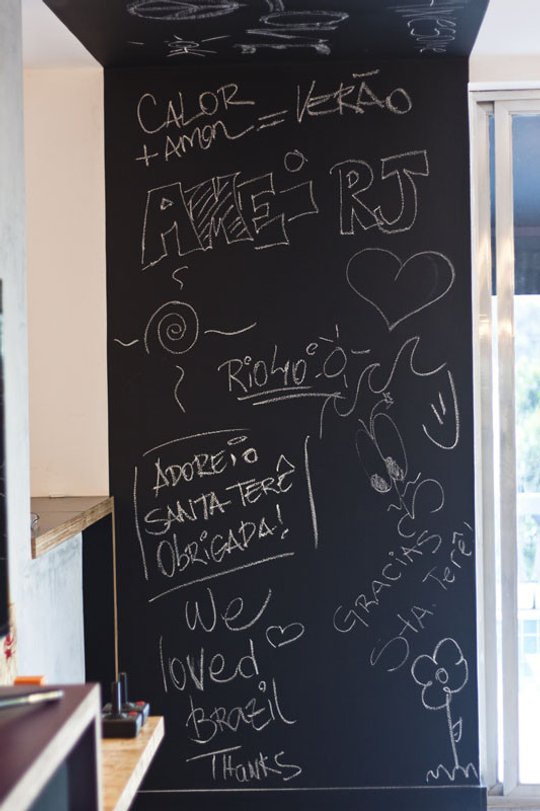 CALOR
+ AMOR = VERÃO
AMEI RJ
RIO40º
ADOREI O
SANTA TERÊ
OBRIGADA!
GRACIAS
STA. Terê!
We
loved
BRAZIL
THANKS